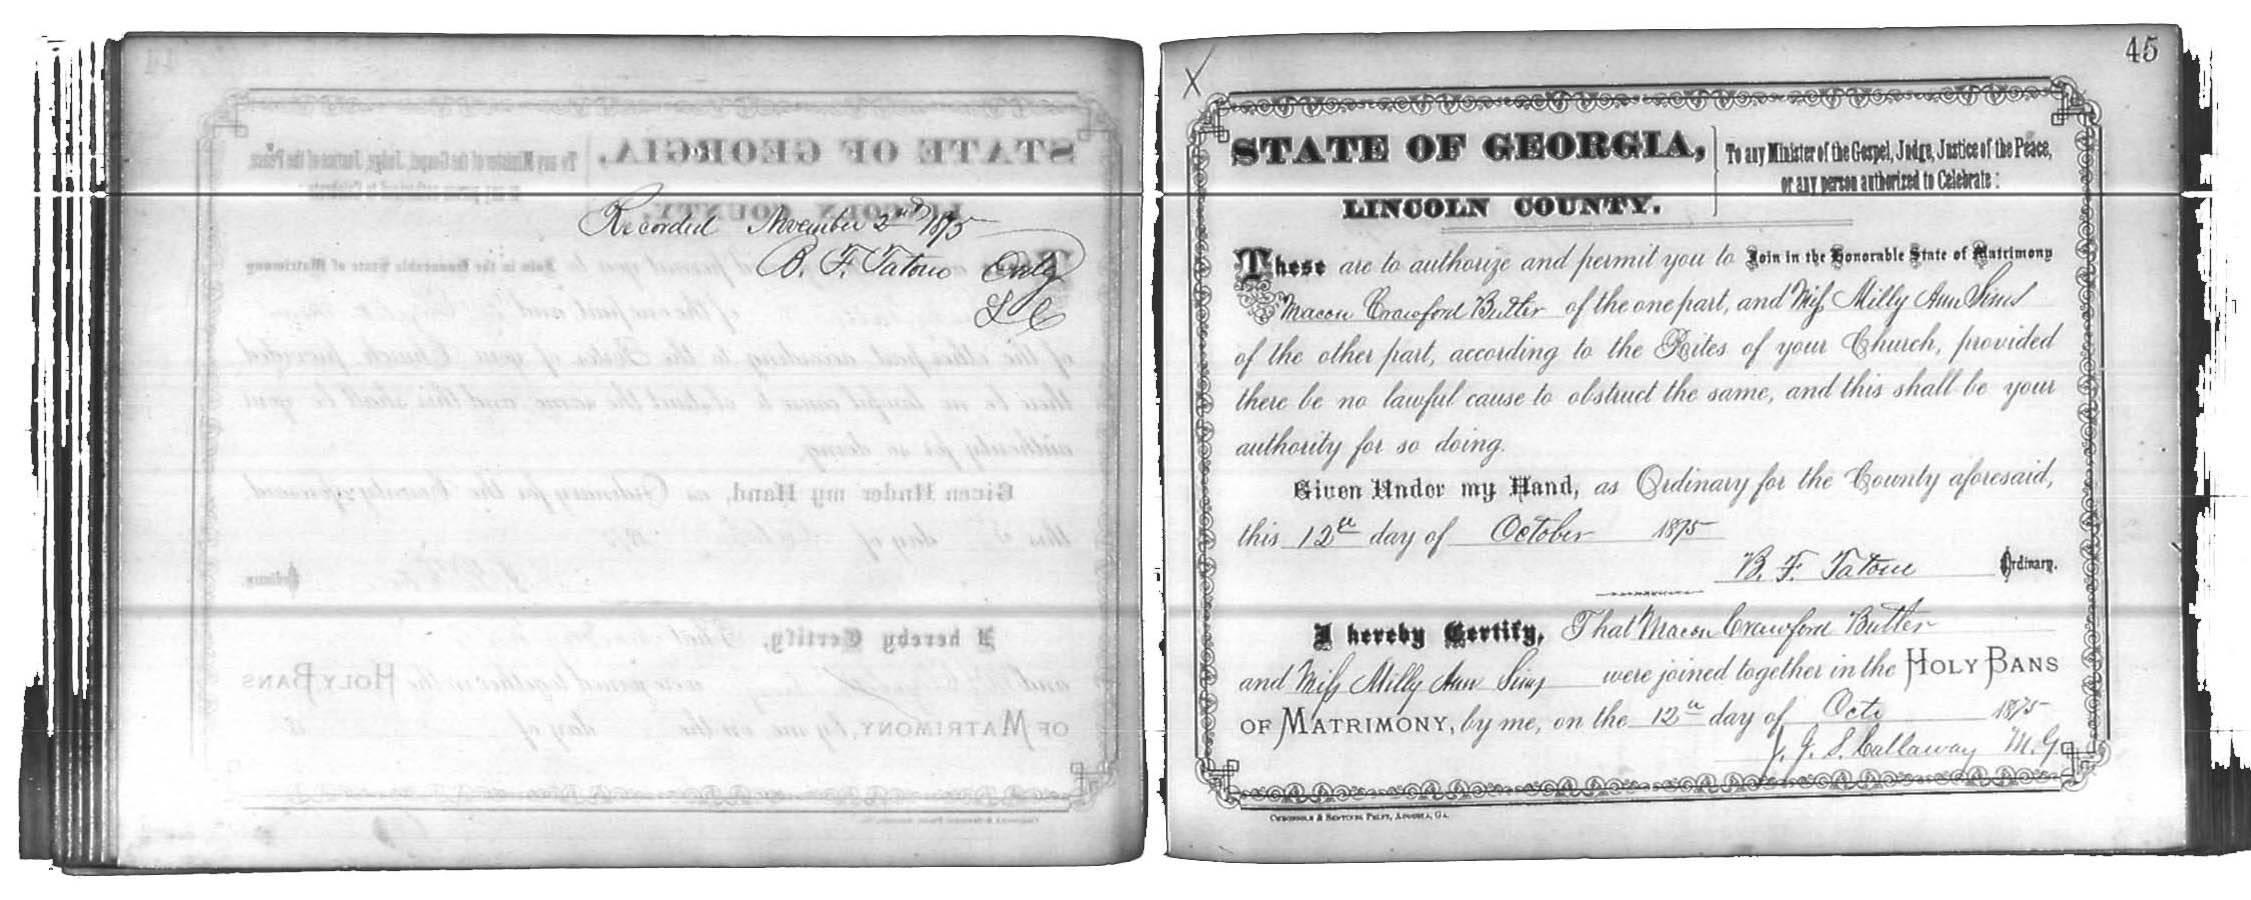 Recorded November 2nd 1875
B. F. Tatom Ordy
L C
45
X
STATE OF GEORGIA,
LINCOLN COUNTY.
To any Minister of the Gospel, Judge, Justice of the Peace,
or any person authorized to Celebrate:
These are to authorize and permit you to Join in the Honorable State of Matrimony
Macon Crawford Butler of the one part, and Miss Milly Ann Sims
of the other part, according to the Rites of your Church, provided
there be no lawful cause to obstruct the same, and this shall be your
authority for so doing.
Given Under my Hand, as Ordinary for the County aforesaid,
this 12th day of October 1875
B. F. Tatom Ordinary.
I hereby Certify, That Macon Crawford Butler
and Miss Milly Ann Sims were joined together in the HOLY BANS
OF MATRIMONY, by me, on the 12th day of Oct. 1875
J. G. S. Callaway M. G.
CHRONICLE & SENTINEL PRINT, AUGUSTA, GA.